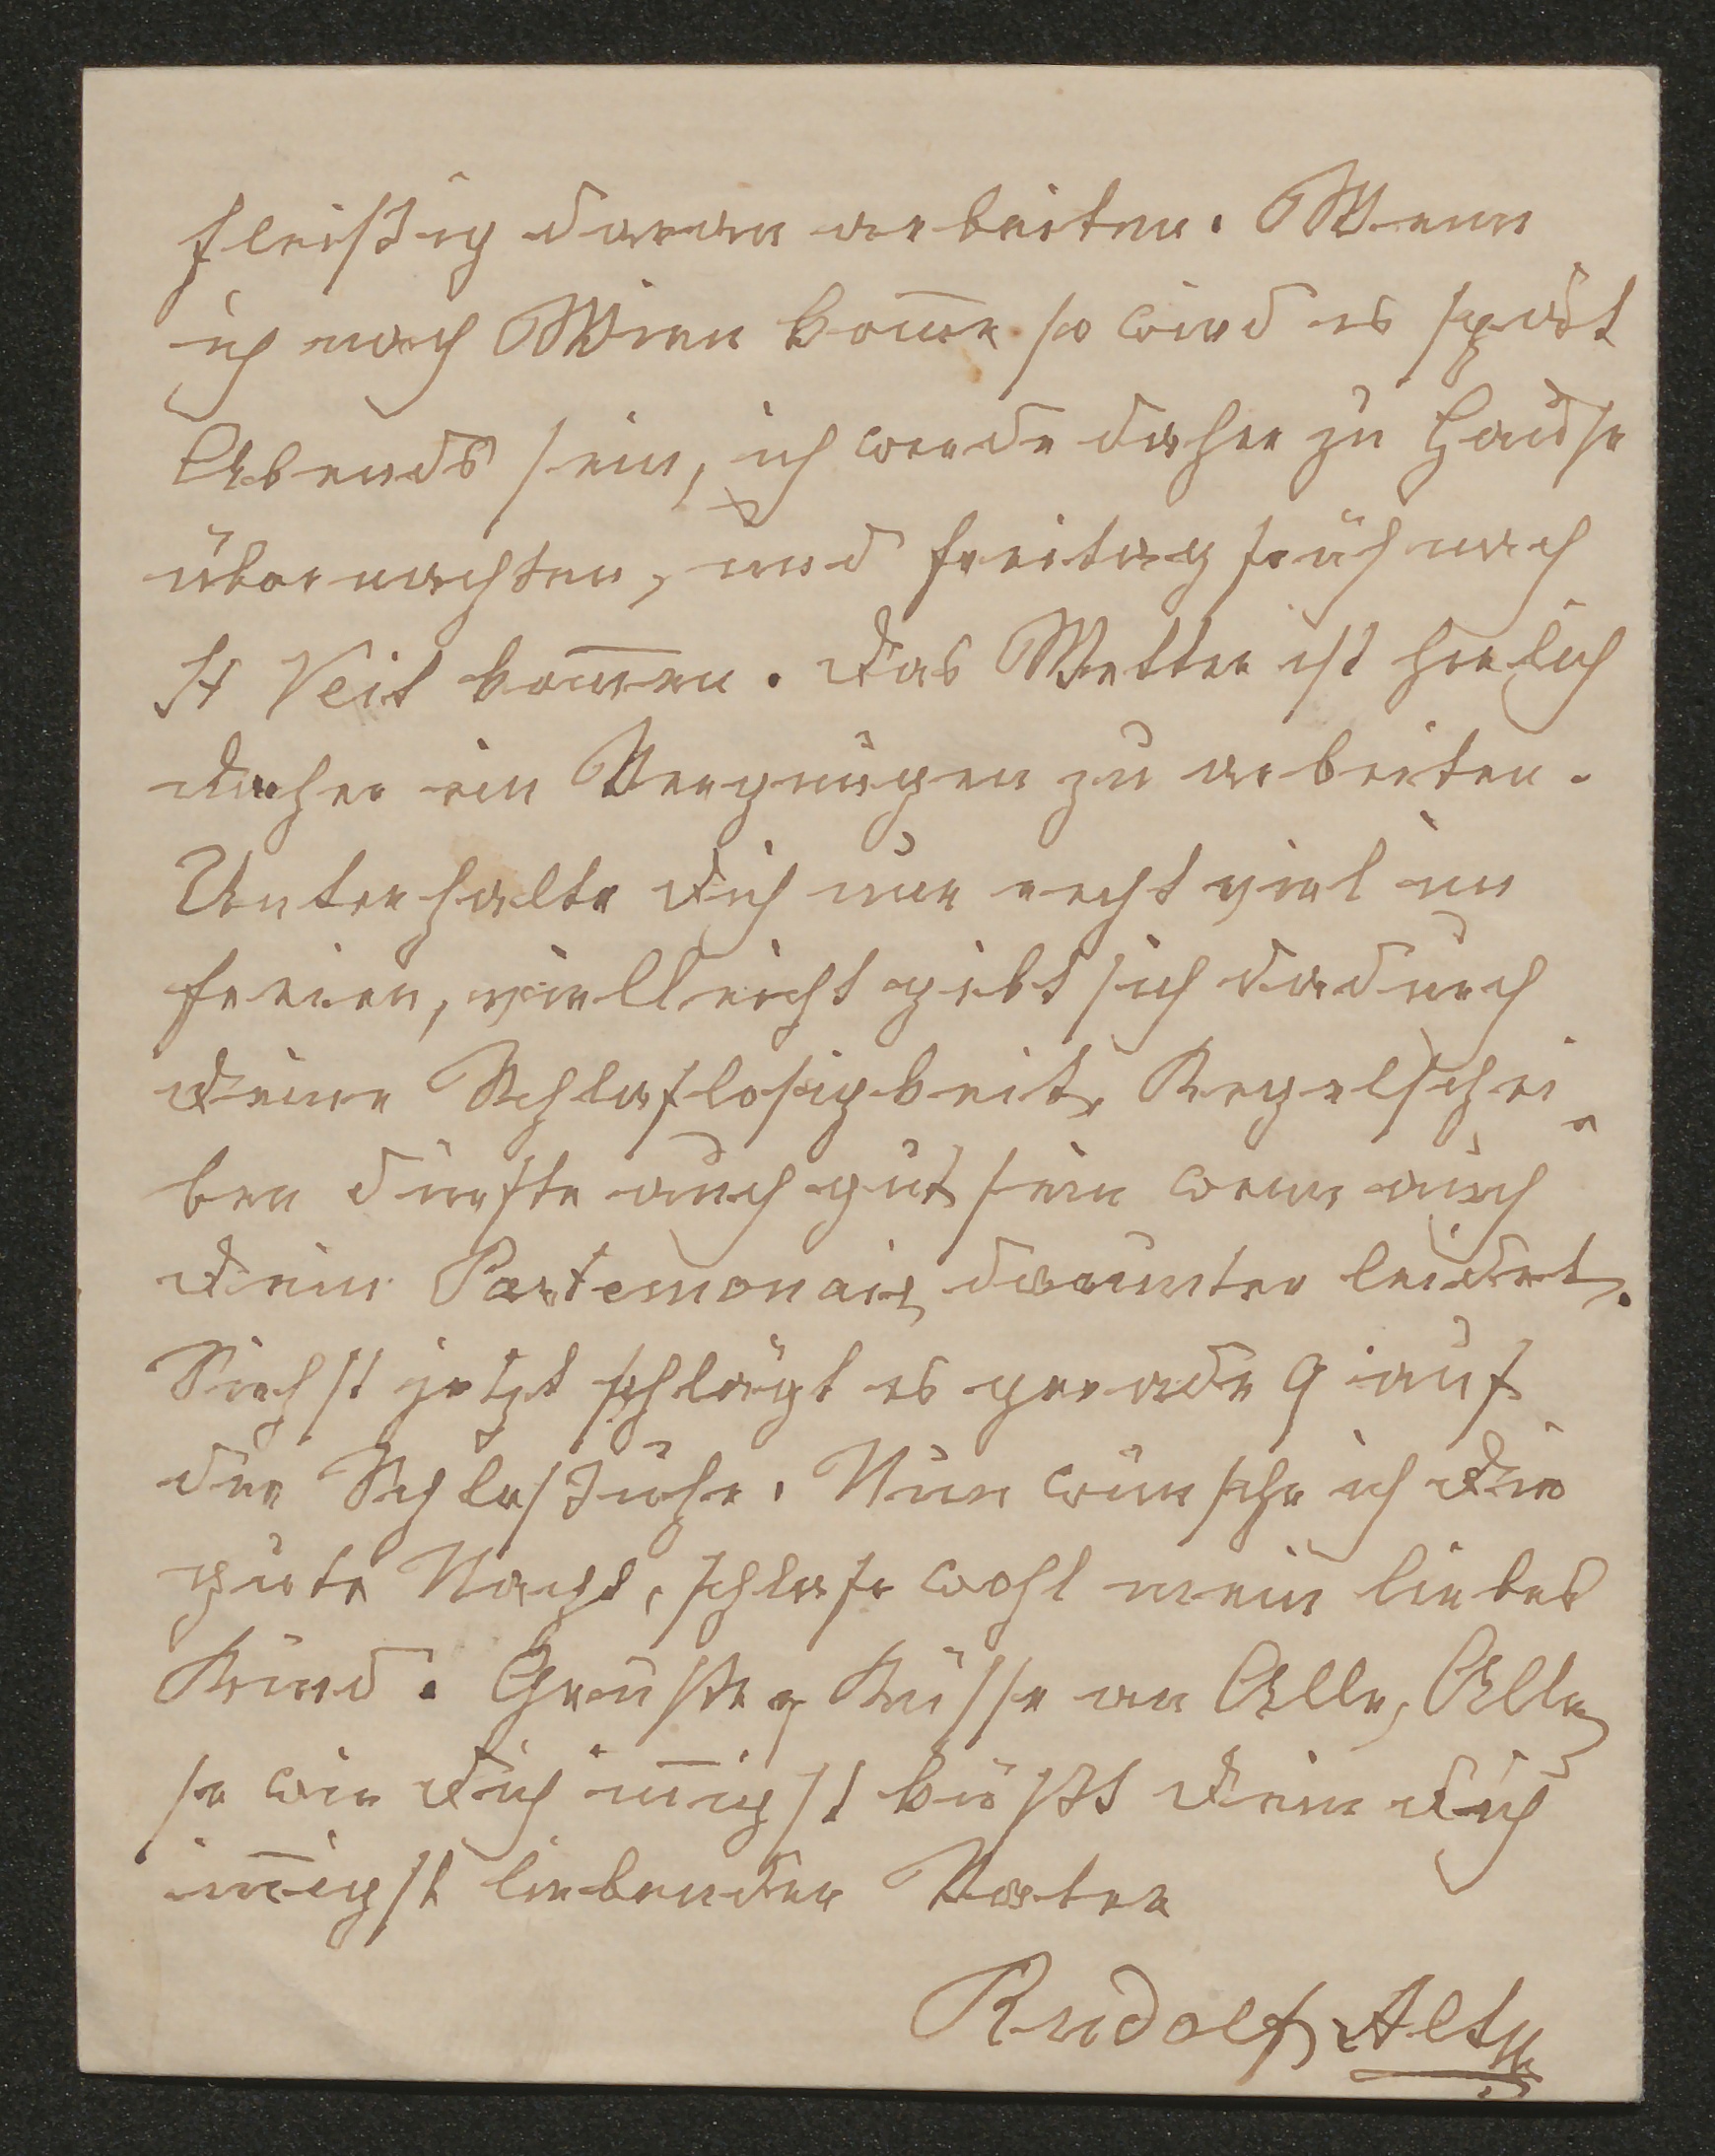 fleißig daran arbeiten. Wenn
ich nach Wien kom̅e so wird es spät
Abends sein, ich werde daher zu Hause
übernachten, und Freitag früh nach
St Veit kom̅en. Das Wetter ist herlich
daher ein Vergnügen zu arbeiten.
Unterhalte Dich nur recht viel im
Freien, vielleicht gibt sich dadurch
Deine Schlaflosigkeit, Kegelschei-
ben dürfte auch gut sein wenn auch
Dein Portemonais darunter leidet.
Siehst jetzt schlägt es gerade 9 auf
der Schloßuhr. Nun wünsche ich Dir
gute Nacht, schlafe wohl mein liebes
Kind. Grüße & Küsse an Alle, Alle
so wie Dich in̅igst küßt Dein Dich
in̅igst liebender Vater
Rudolf Alt